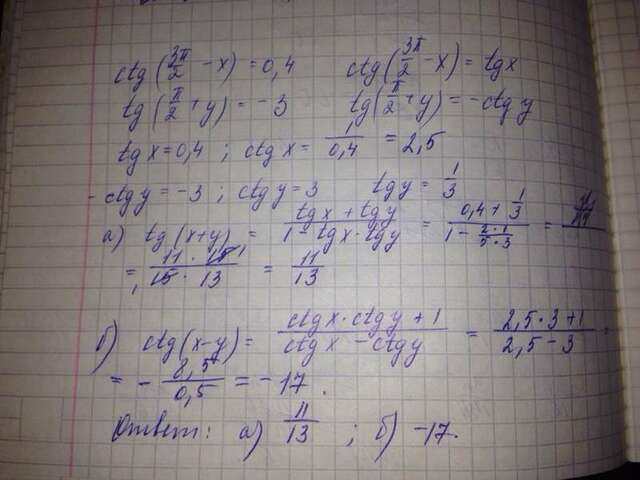 ctg(3π/2 - x) = 0,4    ctg(3π/2 - x) = tgx
tg(π/2 + y) = -3    tg(π/2 + y) = -ctg y
tg x = 0,4 ; ctg x = 1/0,4 = 2,5
- ctg y = -3 ; ctg y = 3    tg y = 1/3
а) tg(x+y) = (tg x + tg y)/(1 - tg x · tg y) = (0,4 + 1/3)/(1 - (2·1)/(5·3)) =
= (11 · 15)/(15 · 13) = 11/13
б) ctg(x-y) = (ctg x · ctg y + 1)/(ctg x - ctg y) = (2,5 · 3 + 1)/(2,5 - 3) =
= - 8,5/0,5 = -17.
Ответ: а) 11/13 ; б) -17.